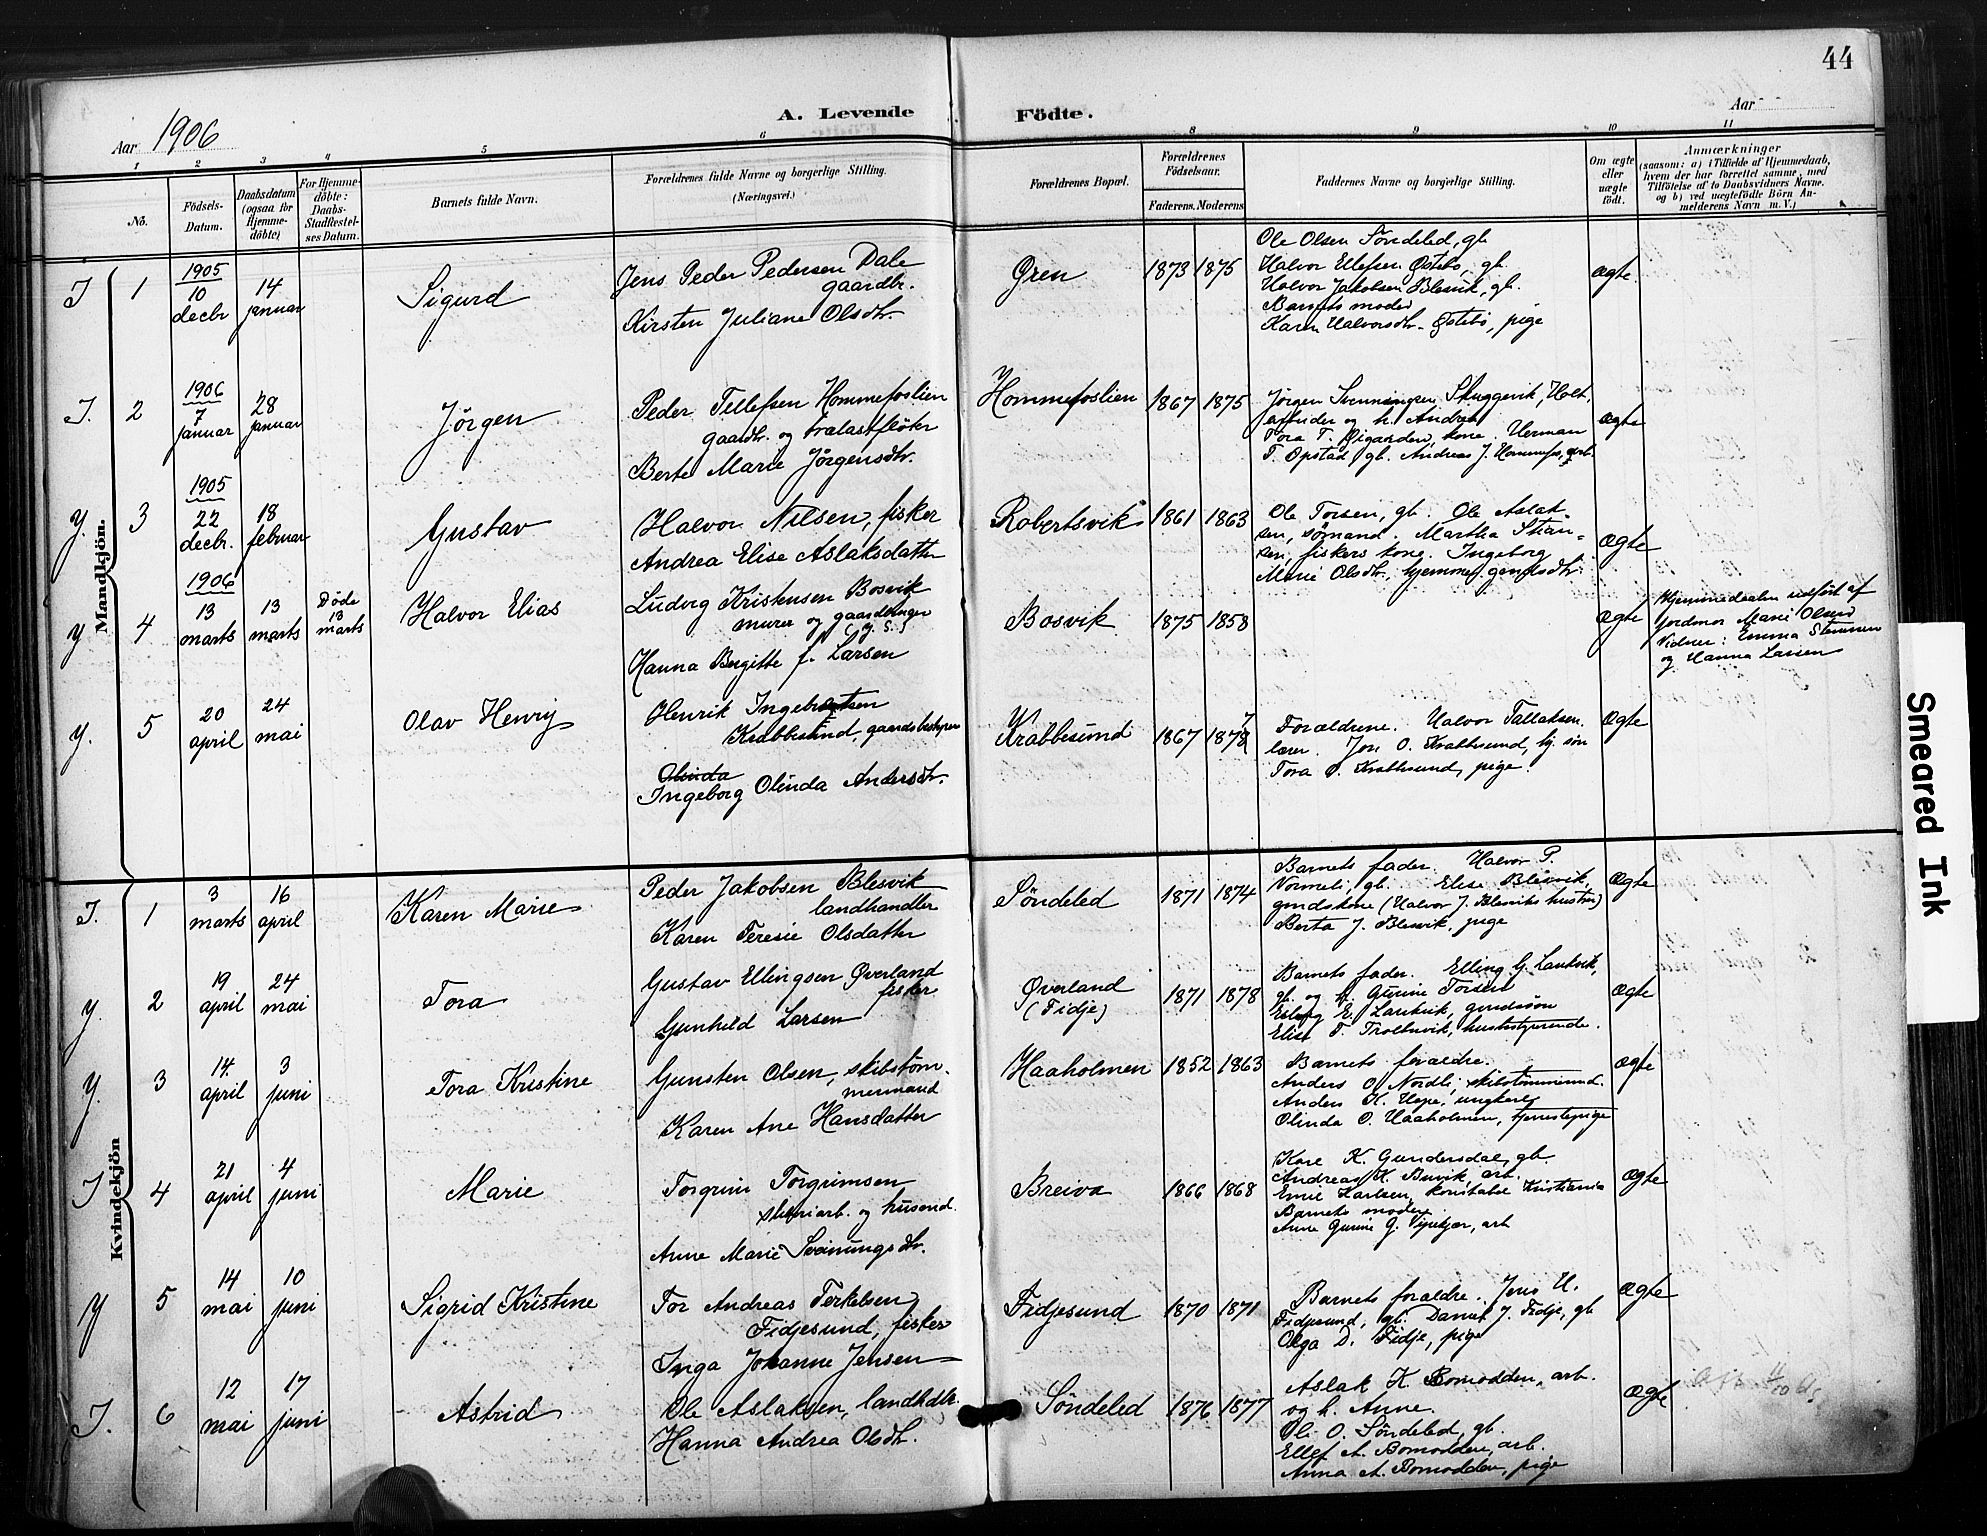 44
Aar 1906
A. Levende Födte.
Aar
1 2 3 4 5 6 8 9 10 11
Nö.
Födsels-Datum.
Daabsdatum (ogsaa for Hjemme-döbte)
For Hjemme-döbte: Daabs-Stadfæstel-ses Datum.
Barnets fulde Navn.
Forældrenes fulde Navne og borgerlige Stilling.
(Næringsvei.)
Forældrenes Bopæl.
Forældrenes Födselsaar.
Faderens. Moderens
Faddernes Navne og borgerlige Stilling.
Om ægte eller uægte født.
Anmærkninger
(saasom: a) i Tilfælde af Hjemmedaab,
hvem der har forrettet samme, med
Tilföielse af to Daabsvidners Navne.
og b) ved uægtefödte Börn An-
melderens Navn m. V.)
Mandkjön.
I 1 1905 10 decbr 14 januar Sigurd
Jens Peder Pedersen Dale
gaardbr.
Kirsten Juliane Olsdtr.
Gren 1873 1875
Ole Olsen Söndeled, gb
Halvor Ellefsen Østebö, gb.
Halvor Jakobsen Blesvik, gb.
Barnets moder
Karen Halvorsdtr. Østebö, pige
ægte
I. 2 1906 7 januar 28 januar Jörgen
Peder Tellefsen Hommefoslien
gaardbr. og trælastfløter
Berte Marie Jörgensdtr.
Hommefoslien 1867 1875
Jörgen Svenningsen Skuggevik, Holt.
arbeider og h. Andrea
Tora T. Øigarden, kone. Herman
T. Opstad, gb. Andreas J. Hommefos, arb.
ægte
Y. 3 1905 22 decbr. 18 februar Gustav
Halvor Nilsen, fisker
Andrea Elise Aslaksdatter
Robertsvik 1861 1863
Ole Torsen, gb. Ole Aslak-
sen, sømand. Martha Stian-
sen, fiskers kone. Ingeborg
Marie Olsdtr., hjemmev. gmdsdtr.
ægte
y 4 1906 13 marts 13 marts Døde 13 marts Halvor Elias
Ludvig Kristensen Bosvik
murer og gaardbruger
Hanna Birgitte f. Larsen
Bosvik 1875 1858
ægte
Hjemmedaaben udført af
jordmor Marie Olsen
Vidner: Emma
og Hanna Larsen
y. 5 20 april 24 mai Olav Henry
Henrik Ingebretsen
Krabbesund, gaardsbestyrer
Olinda
Ingeborg Olinda Andersdtr.
Krabbesund 1867 1878 7
Forældrene. Halvor Tallaksen.
lærer. Jon O. Krabbesund, hj. søn
Tora O. Krabbesund, pige.
ægte
Kvindekjön
I. 1 3 marts 16 april Karen Marie
Peder Jakobsen Blesvik
landhandler
Karen Teresie Olsdatter
Söndeled 1871 1874
Barnets fader. Halvor P.
Normeli, gb. Elise Blesvik,
gmdskone (Halvor J. Blesviks hustru)
Berta J. Blesvik, pige
ægte
y. 2 19 april 24 mai Tora
Gustav Ellingsen Øverland
fisker
Gunhild Larsen
Øverland
(Fidje)
1871 1878
Barnets fader. Elling G. Lauvik,
gb. og h. Gurine Torsen
Esberg E. Lauvik, gmdssøn
Elise T. Trollsvik, husbestyrende.
ægte
y. 3 14. april 3 juni Tora Kristine
Gunsten Olsen, skibstøm-
mermand
Karen Ane Hansdatter
Haaholmen 1852 1863
Barnets forældre.
Anders O. Nordli, skibstømmermd.
Anders K. Uepe, ungkarl
Olinda O. Haaholmen, tjenestepige
ægte
I 4 21 april 4 juni Marie
Torgrim Torgrimsen
skoniarb. og husmd.
Anne Marie Sveinungsdtr.
Breiva 1866 1868
Kare K. Gundersdal, gb.
Andreas K. Buvik, arb.
Emil Karlsen, konstabel Kristiania
Barnets moder.
Anne Gurine G. Vipekjær, arb
ægte
y 5 14 mai 10 juni Sigrid Kristine
Tor Andreas Terkelsen
Fidjesund, fisker
Inga Johanne Jensen
Fidjesund 1870 1871
Barnets forældre. Jens H.
Fidjesund, gb. Daniel J. Fidje, gb
Olga D. Fidje, pige
ægte
I. 6 12 mai 17 juni Astrid
Ole Aslaksen, landhdlr.
Hanna Andrea Olsdtr.
Söndeled 1876 1877
Aslak K. Bomodden, arb.
og h. Anne.
Ole O. Söndeled, gb.
Ellef A. Bomodden, arb.
Anna A. Bomodden, pige
ægte
Smeared Ink